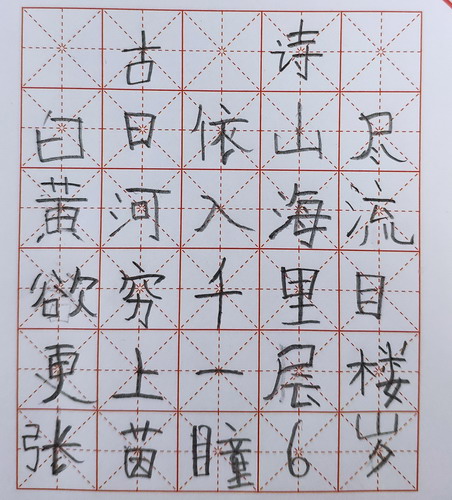 古诗
白日依山尽
黄河入海流
欲穷千里目
更上一层楼
张茵瞳6岁